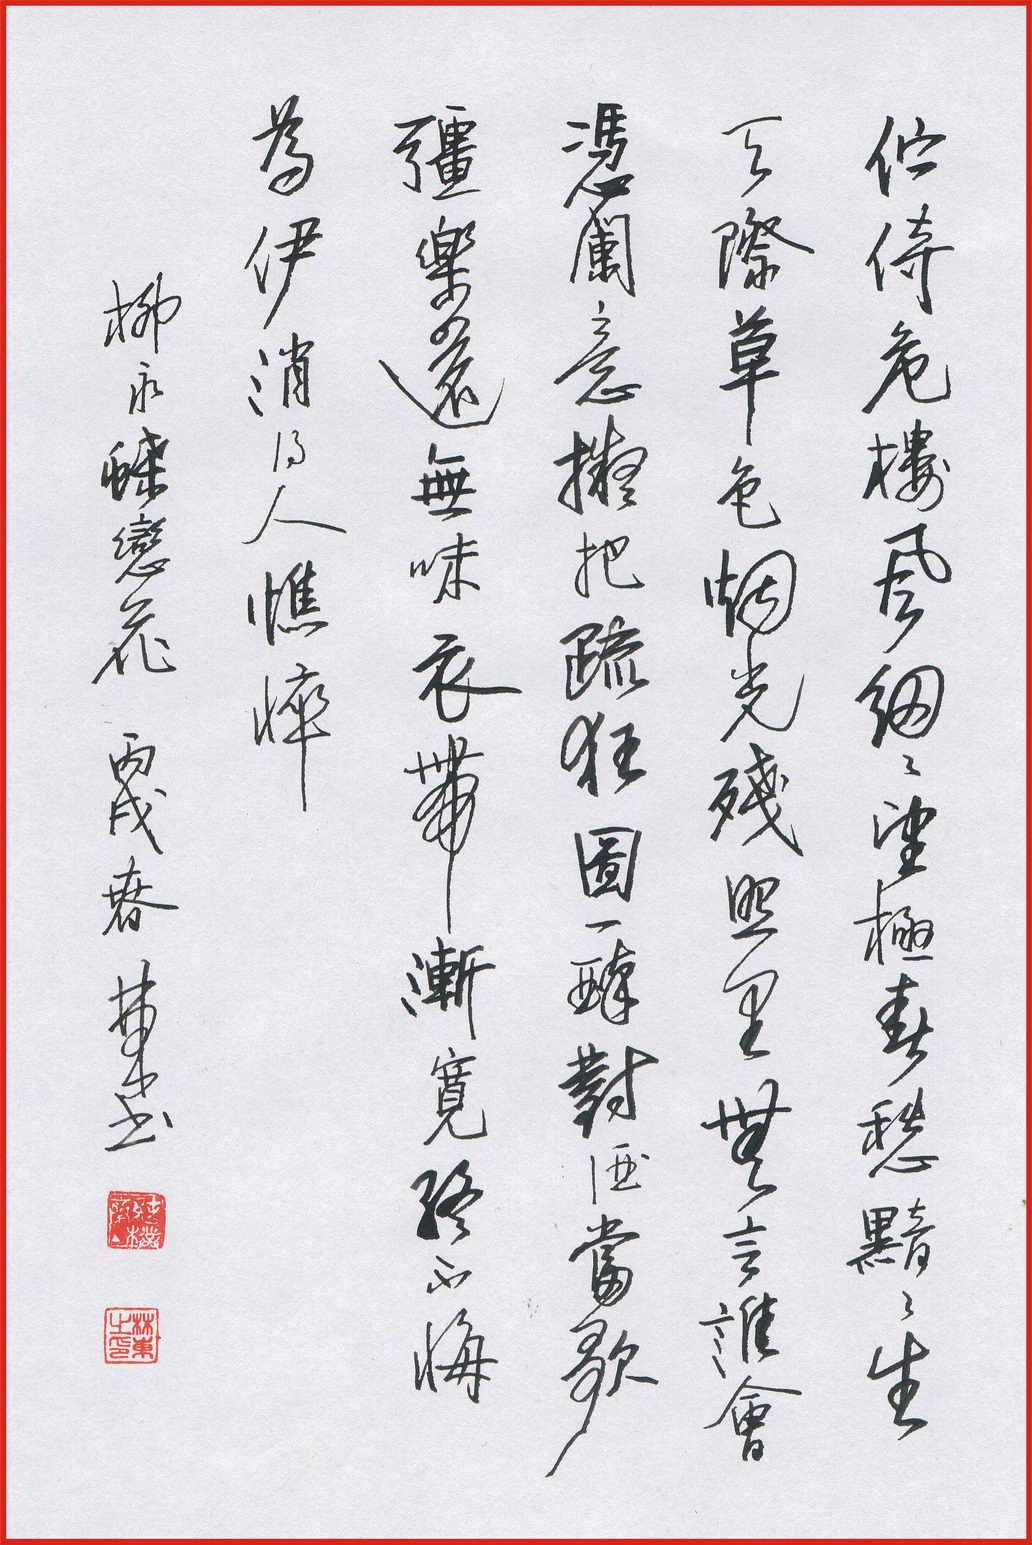 伫倚危樓風细々望極春愁黯々生
天際草色烟光殘照里無言誰會
憑闌意擬把疏狂圖一醉對酒當歌
彊樂還無味衣帶漸寬終不悔
為伊消得人憔悴
柳永蝶戀花 丙戌春 林東書
林東之印